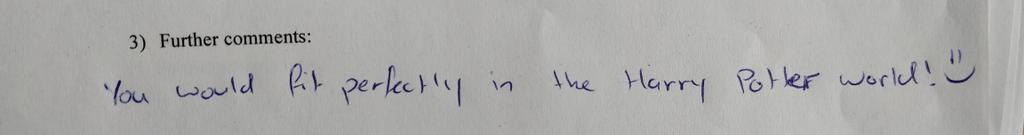 3) Further comments:
You would fit perfectly in the Harry Potter world! :)